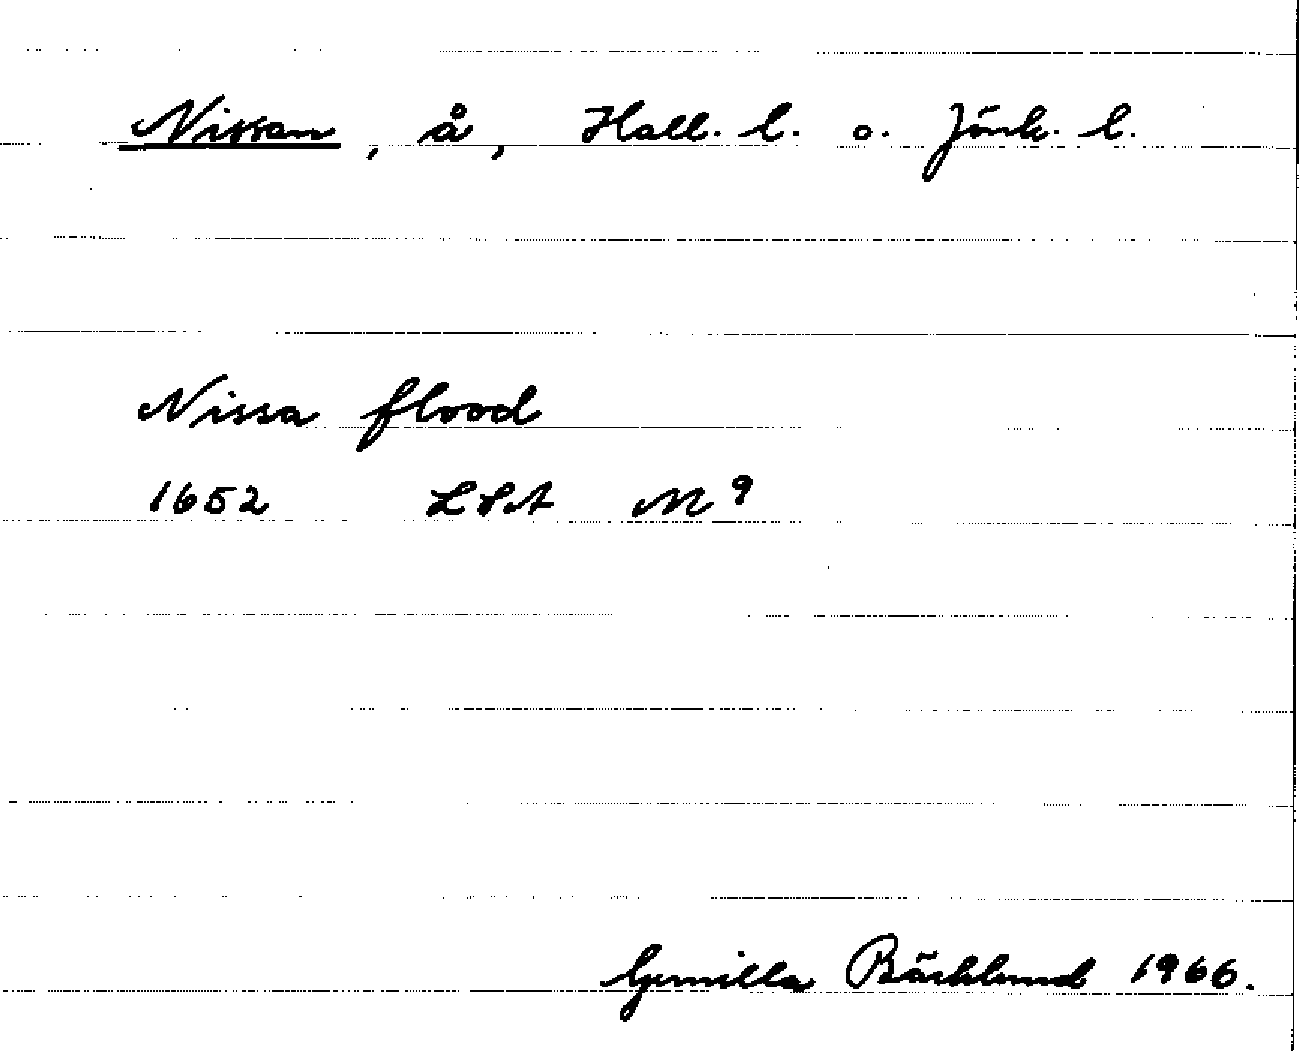 Nissan, å, Hall. l. o. Jönk. l.
Nissa flood
1652 LSA M 9
Gunilla Bäcklund 1966.